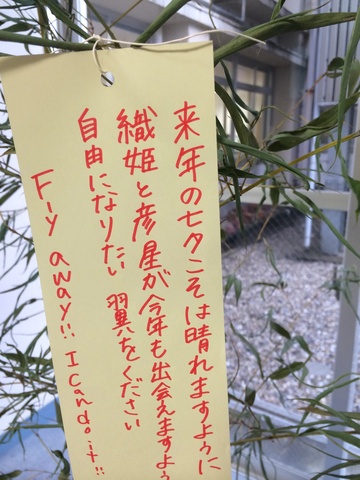 来年の七夕こそは晴れますように
織姫と彦星が今年も出会えますよう
自由になりたい 翼をください
Fly away!! I can do it!!